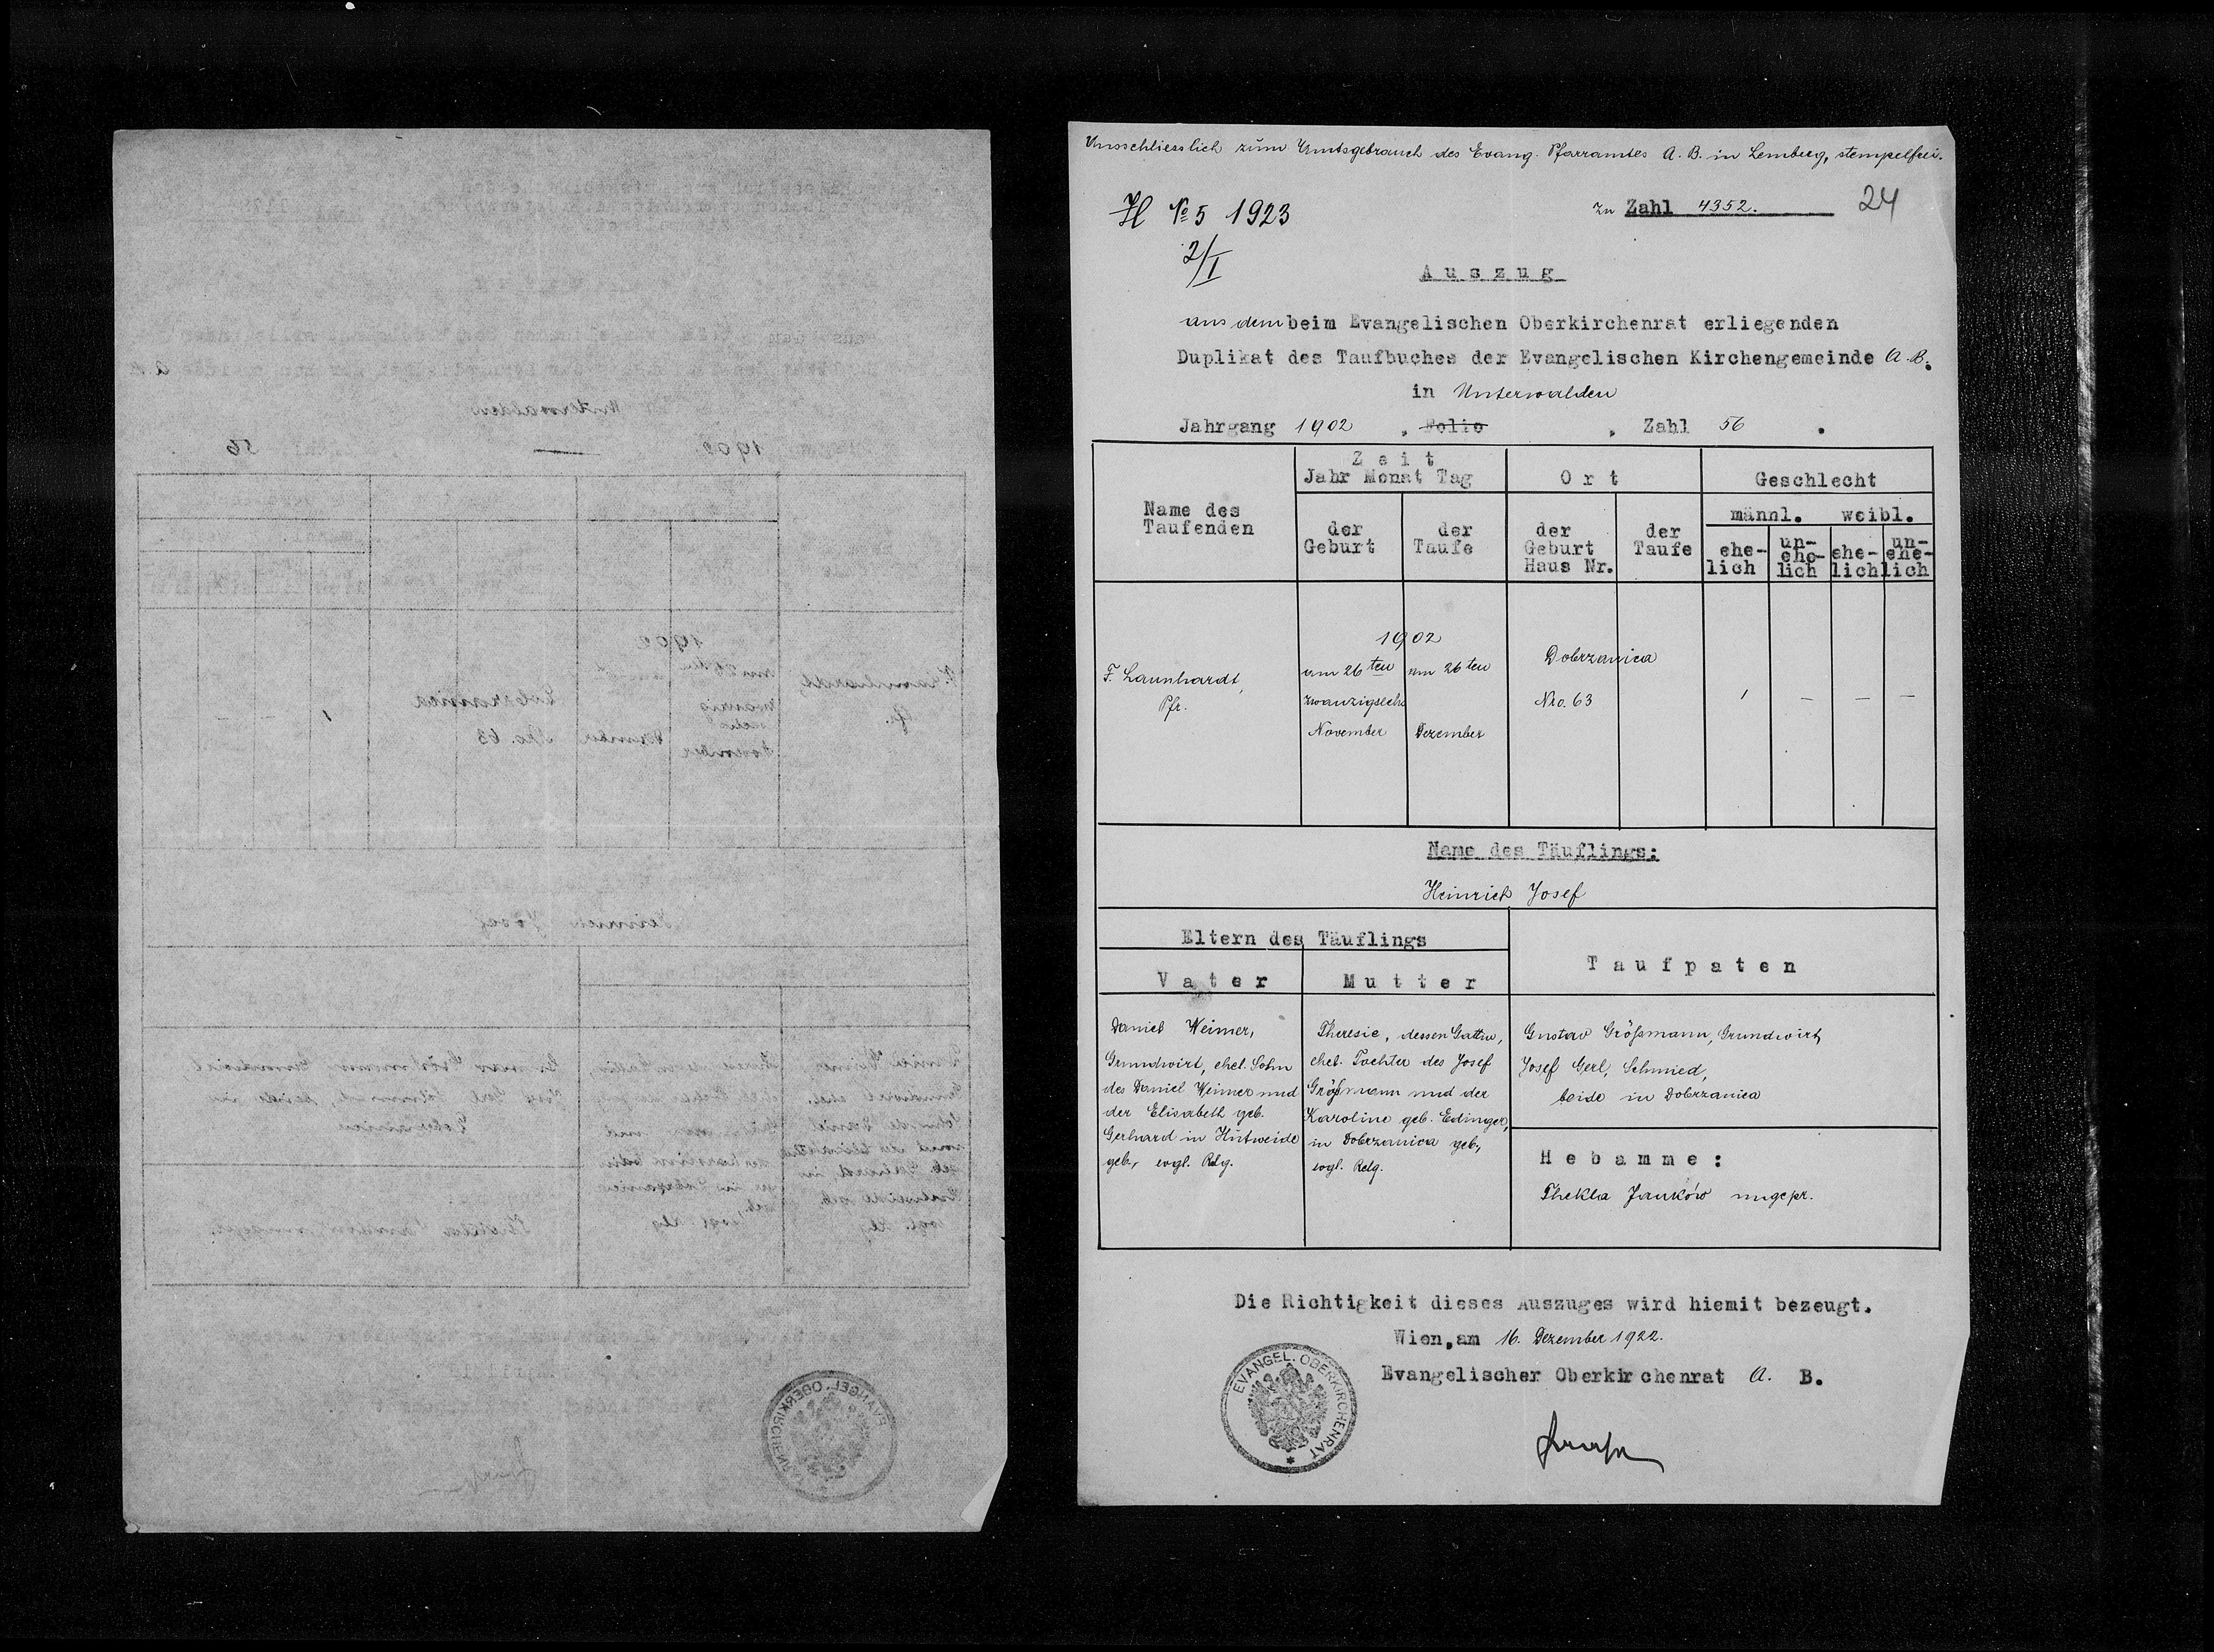 Ausschliesslich zum Amtsgebrauch des Evang. Pfarramtes A. B. in Lemberg, stempelfrei.
№ 5 1923
zu Zahl 4352.
24
2/I
Auszug
aus dem beim Evangelischen Oberkirchenrat erliegenden
Duplikat des Taufbuches der Evangelischen Kirchengemeinde A. B.
in Unterwalden
Jahrgang 1902, Folio , Zahl 56.
Name des Taufenden
Zeit
Jahr Monat Tag
der Geburt
der Taufe
Ort
der Geburt Haus Nr.
der Taufe
Geschlecht
männl. weibl.
ehe-lich
un-ehe-lich
ehe-lich
un-ehe-lich
F. Launhardt,
Pfr.
1902
am 26ten
zwanzigsechs
November
am 26ten
Dezember
Dobrzanica
Nro. 63
1
—
—
—
Name des Täuflings:
Heinrich Josef
Eltern des Täuflings
Vater
Mutter
Taufpaten
Daniel Weimer,
Grundwirt, ehel. Sohn
des Daniel Weimer und
der Elisabeth geb.
Gerhard in Hutweide
geb., evgl. Relg.
Theresie, dessen Gattin,
ehel. Tochter des Josef
Größmann und der
Karoline geb. Edinger,
in Dobrzanica geb.,
evgl. Relg.
Gustav Größmann, Grundwirt,
Josef Gerl, Schmied,
beide in Dobrzanica
Hebamme:
Thekla Janków ungepr.
Die Richtigkeit dieses Auszuges wird hiemit bezeugt.
Wien, am 16. Dezember 1922.
Evangelischer Oberkirchenrat A. B.
EVANGEL. OBERKIRCHENRAT